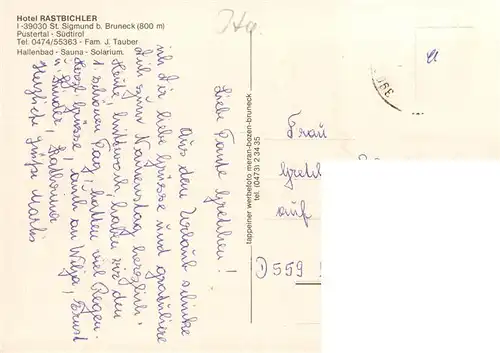 Hotel RASTBICHLER
I -39030 St. Sigmund b. Bruneck (800 m)
Pustertal - Südtirol
Tel. 0474/55363 - Fam. J. Tauber
Hallenbad - Sauna - Solarium.
Liebe Tante Gretchen!
Aus dem Urlaub schicke
ich Dir liebe Grüsse und gratuliere
Dich zum Namenstag herzlich.
Heute, Mittwoch, hatten wir den
1. schönen Tag, hatten viel Regen.
Herzl. Grüsse, auch an Wilja, Ernst
u. Kinder,
Herzliche Grüße
tappeiner werbefoto meran-bozen-bruneck
tel. (0473) 2 34 35
Frau
auf
D 559